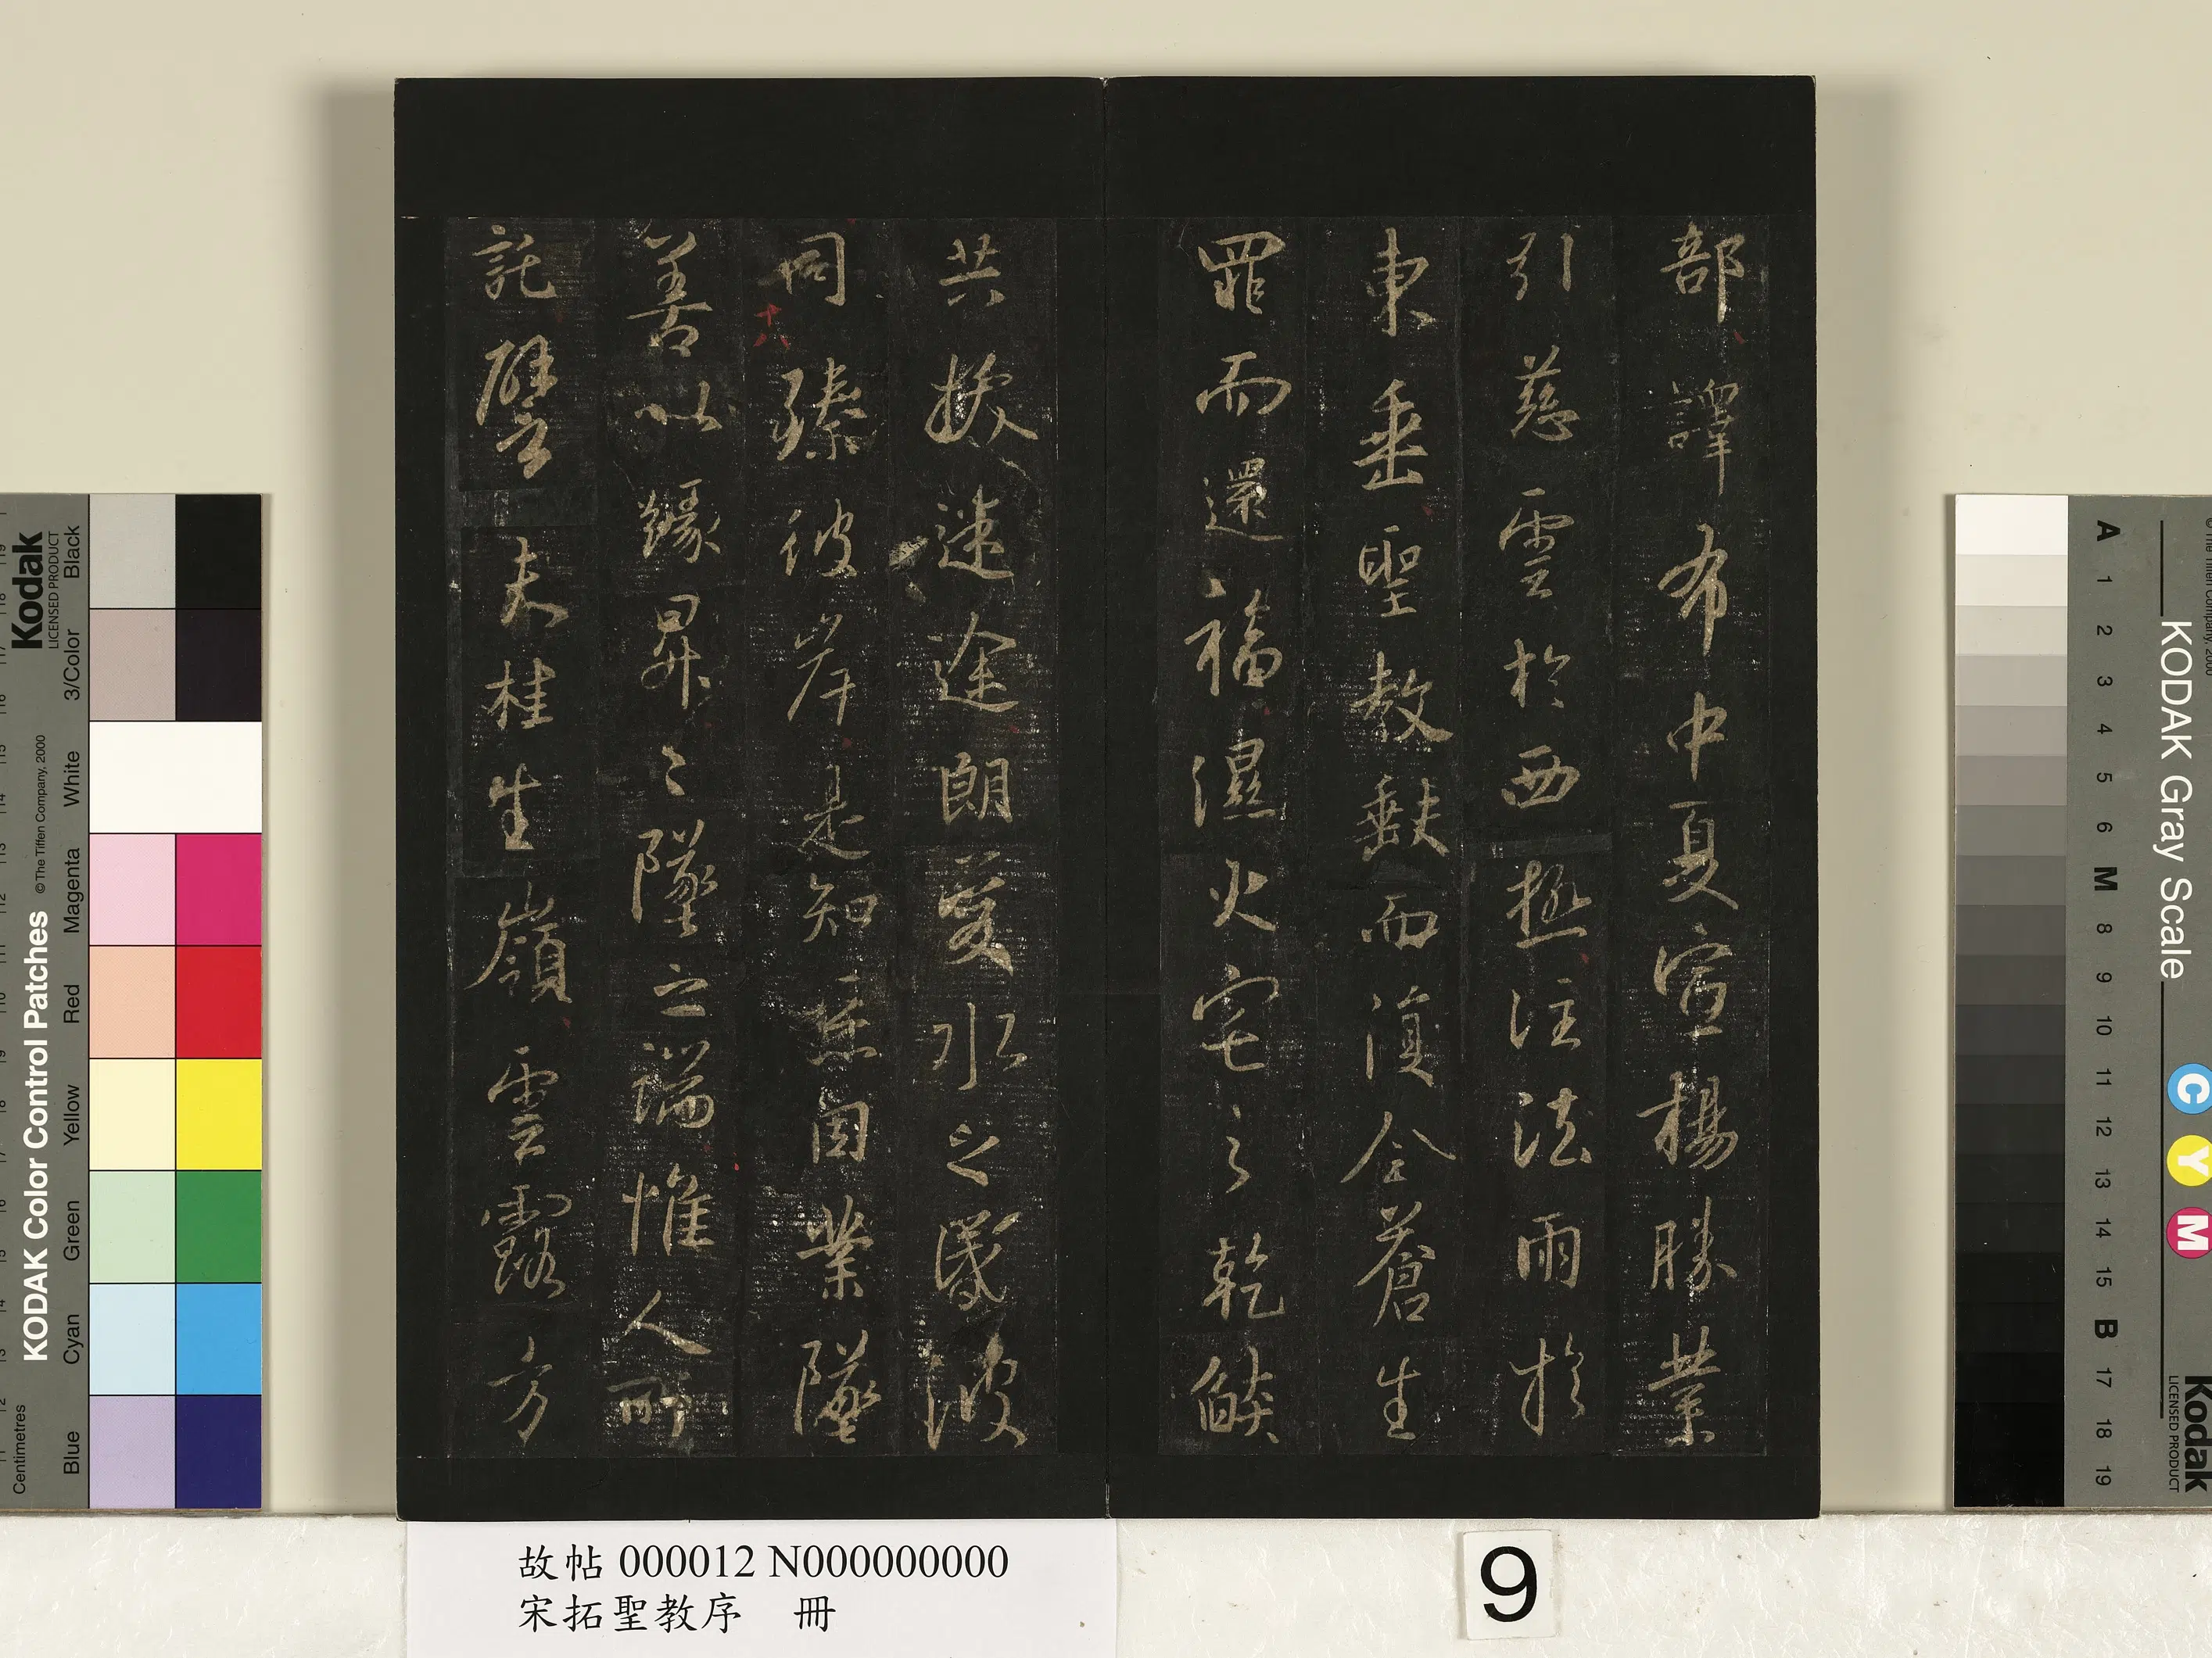 部譯布中夏宣揚勝業
引慈雲於西極注法雨於
東垂聖教缺而復全蒼生
罪而還福濕火宅之乾燄
共拔迷途朗愛水之昏波
同臻彼岸是知惡因業墜
善以緣昇々墜之端惟人所
託譬夫桂生嶺雲露方
十八
故帖 000012 N000000000
宋拓聖教序 冊
9
KODAK Color Control Patches
© The Tiffen Company, 2000
Kodak
LICENSED PRODUCT
Centimetres
Blue Cyan Green Yellow Red Magenta White 3/Color Black
KODAK Gray Scale
A 1 2 3 4 5 6 M 8 9 10 11 12 13 14 15 B 17 18 19
C Y M
Kodak
LICENSED PRODUCT